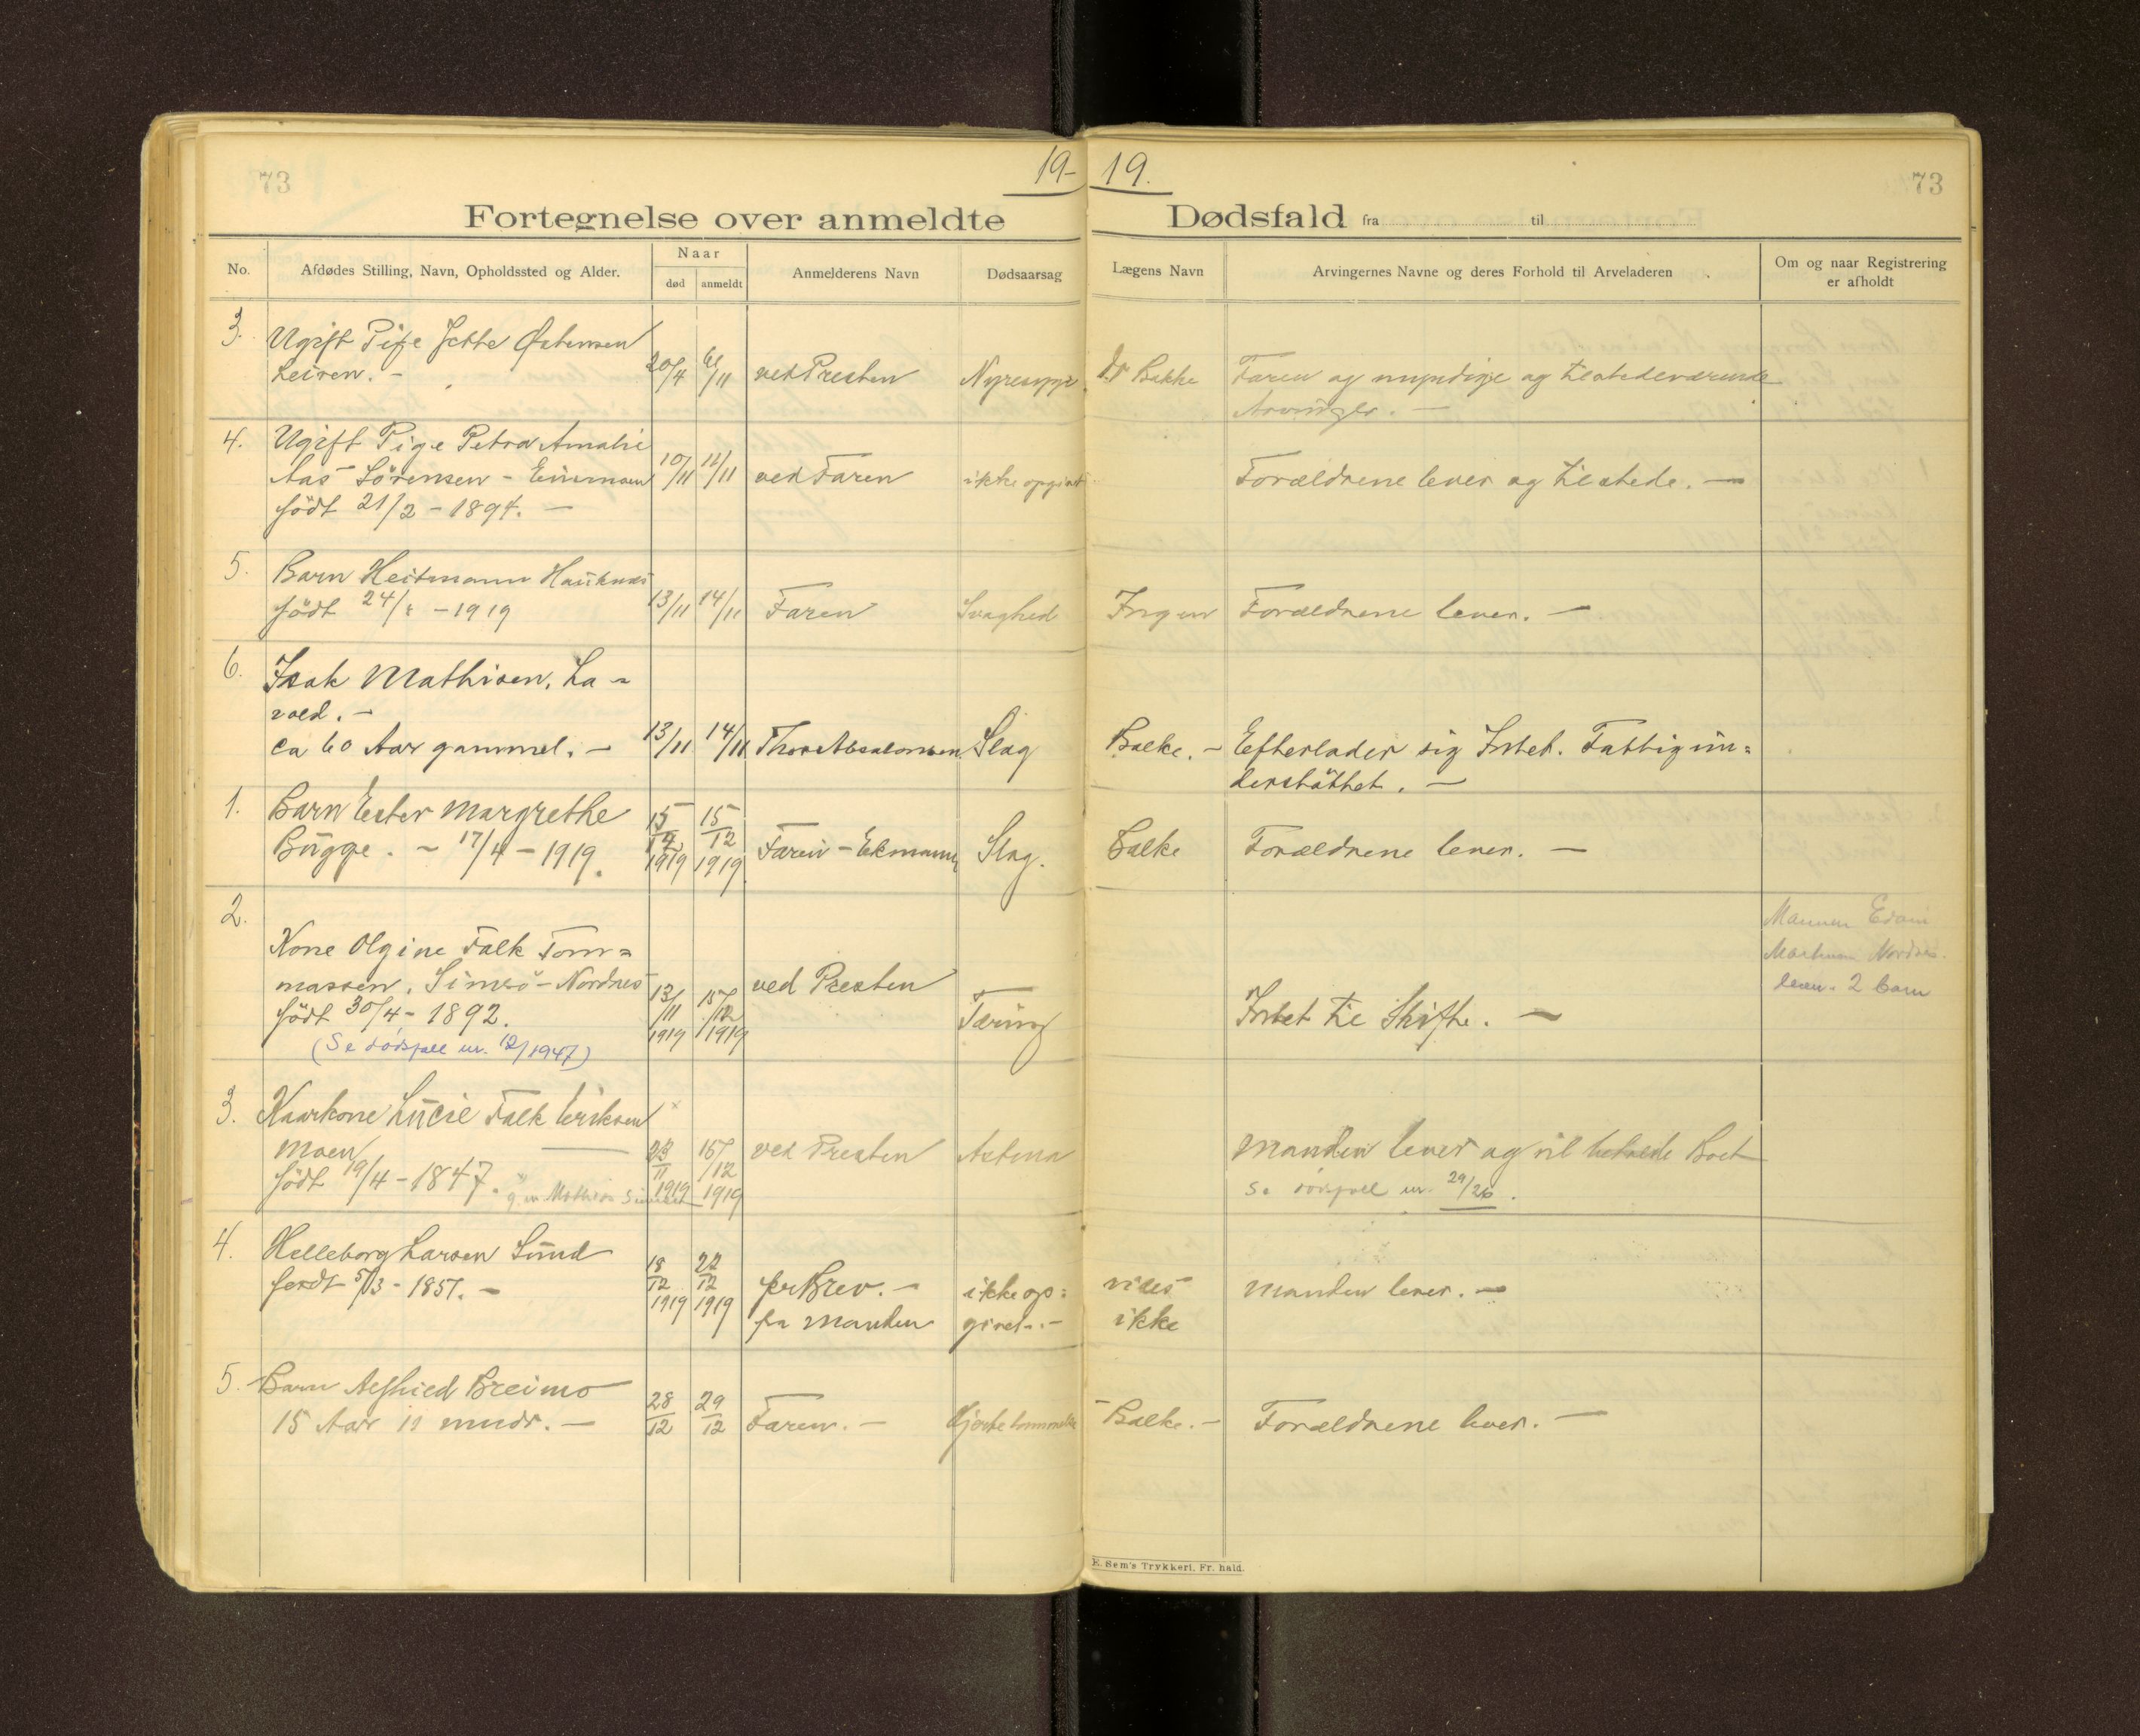 73
19-
19.
73
Fortegnelse over anmeldte
Dødsfald fra til
No.
Afdødes Stilling, Navn, Opholdssted og Alder.
Naar
død
anmeldt
Anmelderens Navn
Dødsaarsag
Lægens Navn
Arvingernes Navne og deres Forhold til Arveladeren
Om og naar Registrering
er afholdt
3. Ugift Pige Jette Østensen
Leiren. -
20/4
/11
ved Presten
Nyresyge.
Dr Bakke
Faren og myndige og tilstedeværende
Arvinger. -
4. Ugift Pige Petra Amalie
Aas Sörensen -
födt 21/2 - 1894. -
10/11
12/11
ved Faren
ikke opgivet
Forældrene lever og tilstede. -
5. Barn Heitmann Hauknes
födt 24/8 - 1919
13/11
14/11
Faren
Svaghed
Ingen
Forældrene lever. -
6. Isak Mathisen, La-
vold. -
ca 60 Aar gammel. -
13/11
14/11
Thor Absalonsen
Slag
Balke. -
Efterlader sig Intet. Fattigün=
derstöttet. -
1. Barn Ester Margrethe
Bügge. - 17/4 - 1919.
15/12 1919
15/12 1919
Faren - Ekmann
Slag.
Balke
Forældrene lever. -
2.
Kone Olgine Falk Tom=
massen, Simsö - Nordnes
födt 30/4 - 1892.
(Se dödsfall nr. 12/1947)
13/11 1919
15/12 1919
ved Presten
Tæring
Intet til Skifte. -
Mannen Edam
Martinsen Nordnes.
lever. 2 barn
3. Kaarkone Lücie Falk Eriksen
Moen
födt 19/4 - 1847.
g. m. Mathias
23/11 1919
15/12 1919
ved Presten
Astma
Manden lever og vil Boet
Se dödsfall nr. 29/26.
4. Helleborg Larsen Sünd
fördt 5/3 - 1851. -
18/12 1919
22/12 1919
pr Brev. -
fra Manden
ikke op=
givet. -
vides
ikke
Manden lever. -
5. Barn Alfhild Breimo
15 Aar 11 mndr. -
28/12
29/12
Faren. -
Balke. -
Forældrene lever. -
E. Sem's Trykkeri, Fr. hald.